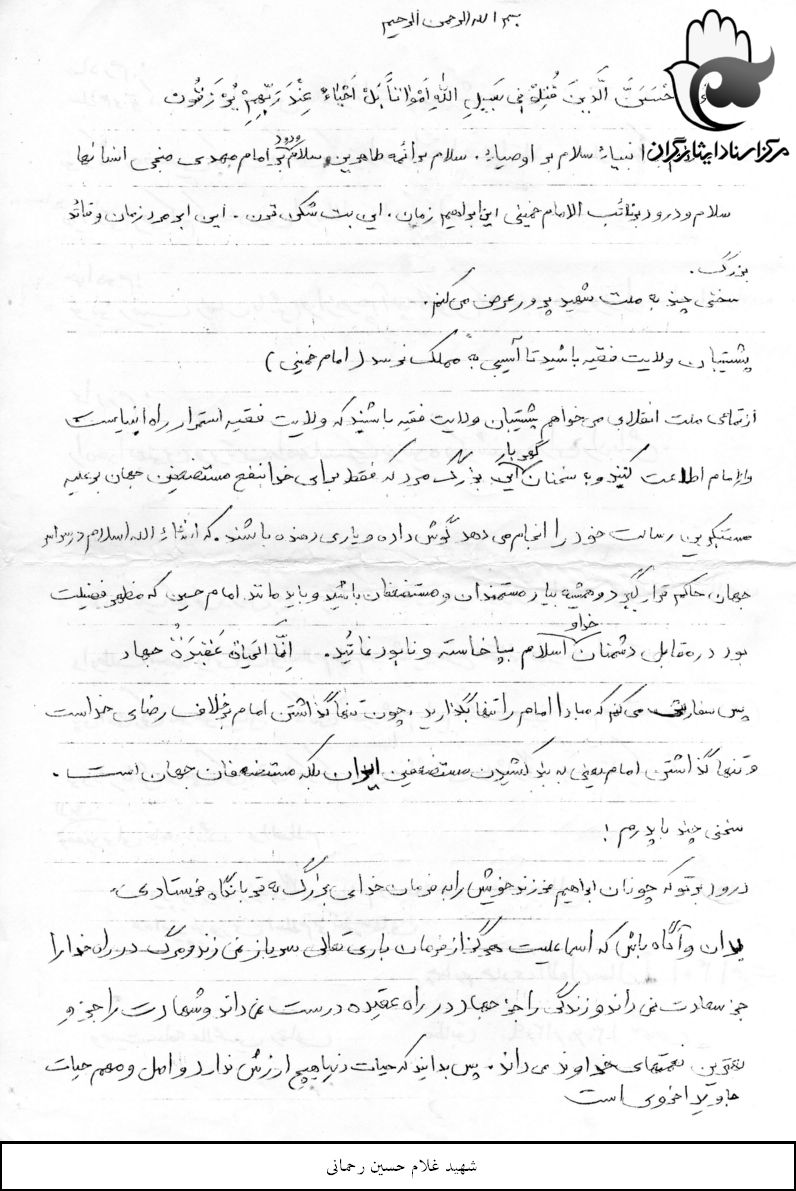 بسم الله الرحمن الرحیم
حْسَبَنَّ الَّذینَ قُتِلُوا فی سَبیلِ اللّهِ اَمْواتاً بَلْ اَحْیاءٌ عِنْدَ رَبِّهِمْ یُرْزَقُون
مرکز اسناد ایثارگران
انبیاء سلام بر اوصیاء. سلام بر ائمه طاهرین سلام و درود بر امام مهدی منجی انسانها
سلام و درود بر نائب الامام خمینی این ابراهیم زمان. این بت شکن قرن. این ابرمرد زمان و قائد
بزرگ.
سخنی چند به ملت شهید پرور عرض می کنم.
پشتیبان ولایت فقیه باشید تا آسیبی به مملکت نرسد (امام خمینی)
از تمامی ملت انقلابی می خواهم پشتیبان ولایت فقیه باشند که ولایت فقیه استمرار راه انبیاست
و از امام اطاعت کنید و به سخنان گهربار این بزرگ مرد که فقط برای خدا بنفع مستضعفین جهان بر علیه
مستکبرین رسالت خود را انجام می دهد گوش داده و یاری دهنده باشند. که انشاء الله اسلام در سراسر
جهان حاکم قرار گیرد و همیشه یار مستمندان و مستضعفان باشید و باید مانند امام حسین که مظهر فضیلت
بود در مقابل دشمنان خدا و اسلام بپا خاسته و نابود نمائید. اِنَّمَا الحَیاةُ عَقیدَةٌ جهاد
پس سفارش می کنم که مبادا امام را تنها بگذارید. چون تنها گذاشتن امام بر خلاف رضای خداست
و تنها گذاشتن امام یعنی به بند کشیدن مستضعفین ایران بلکه مستضعفان جهان است.
سخنی چند با پدرم!
درود بر تو که چونان ابراهیم فرزند خویش را به فرمان خدای بزرگ به قربانگاه فرستادی.
بدان و آگاه باش که اسماعیلت هرگز از فرمان باری تعالی سر باز نمی زند و مرگ در راه خدا را
جز سعادت نمی داند و زندگی را جز جهاد در راه عقیده درست نمی داند و شهادت را جزو
بهترین نعمتهای خداوند می داند. پس بدانید که حیات دنیا هیچ ارزش ندارد و اصل و مهم حیات
جاوید اخروی است
شهید غلام حسین رحمانی